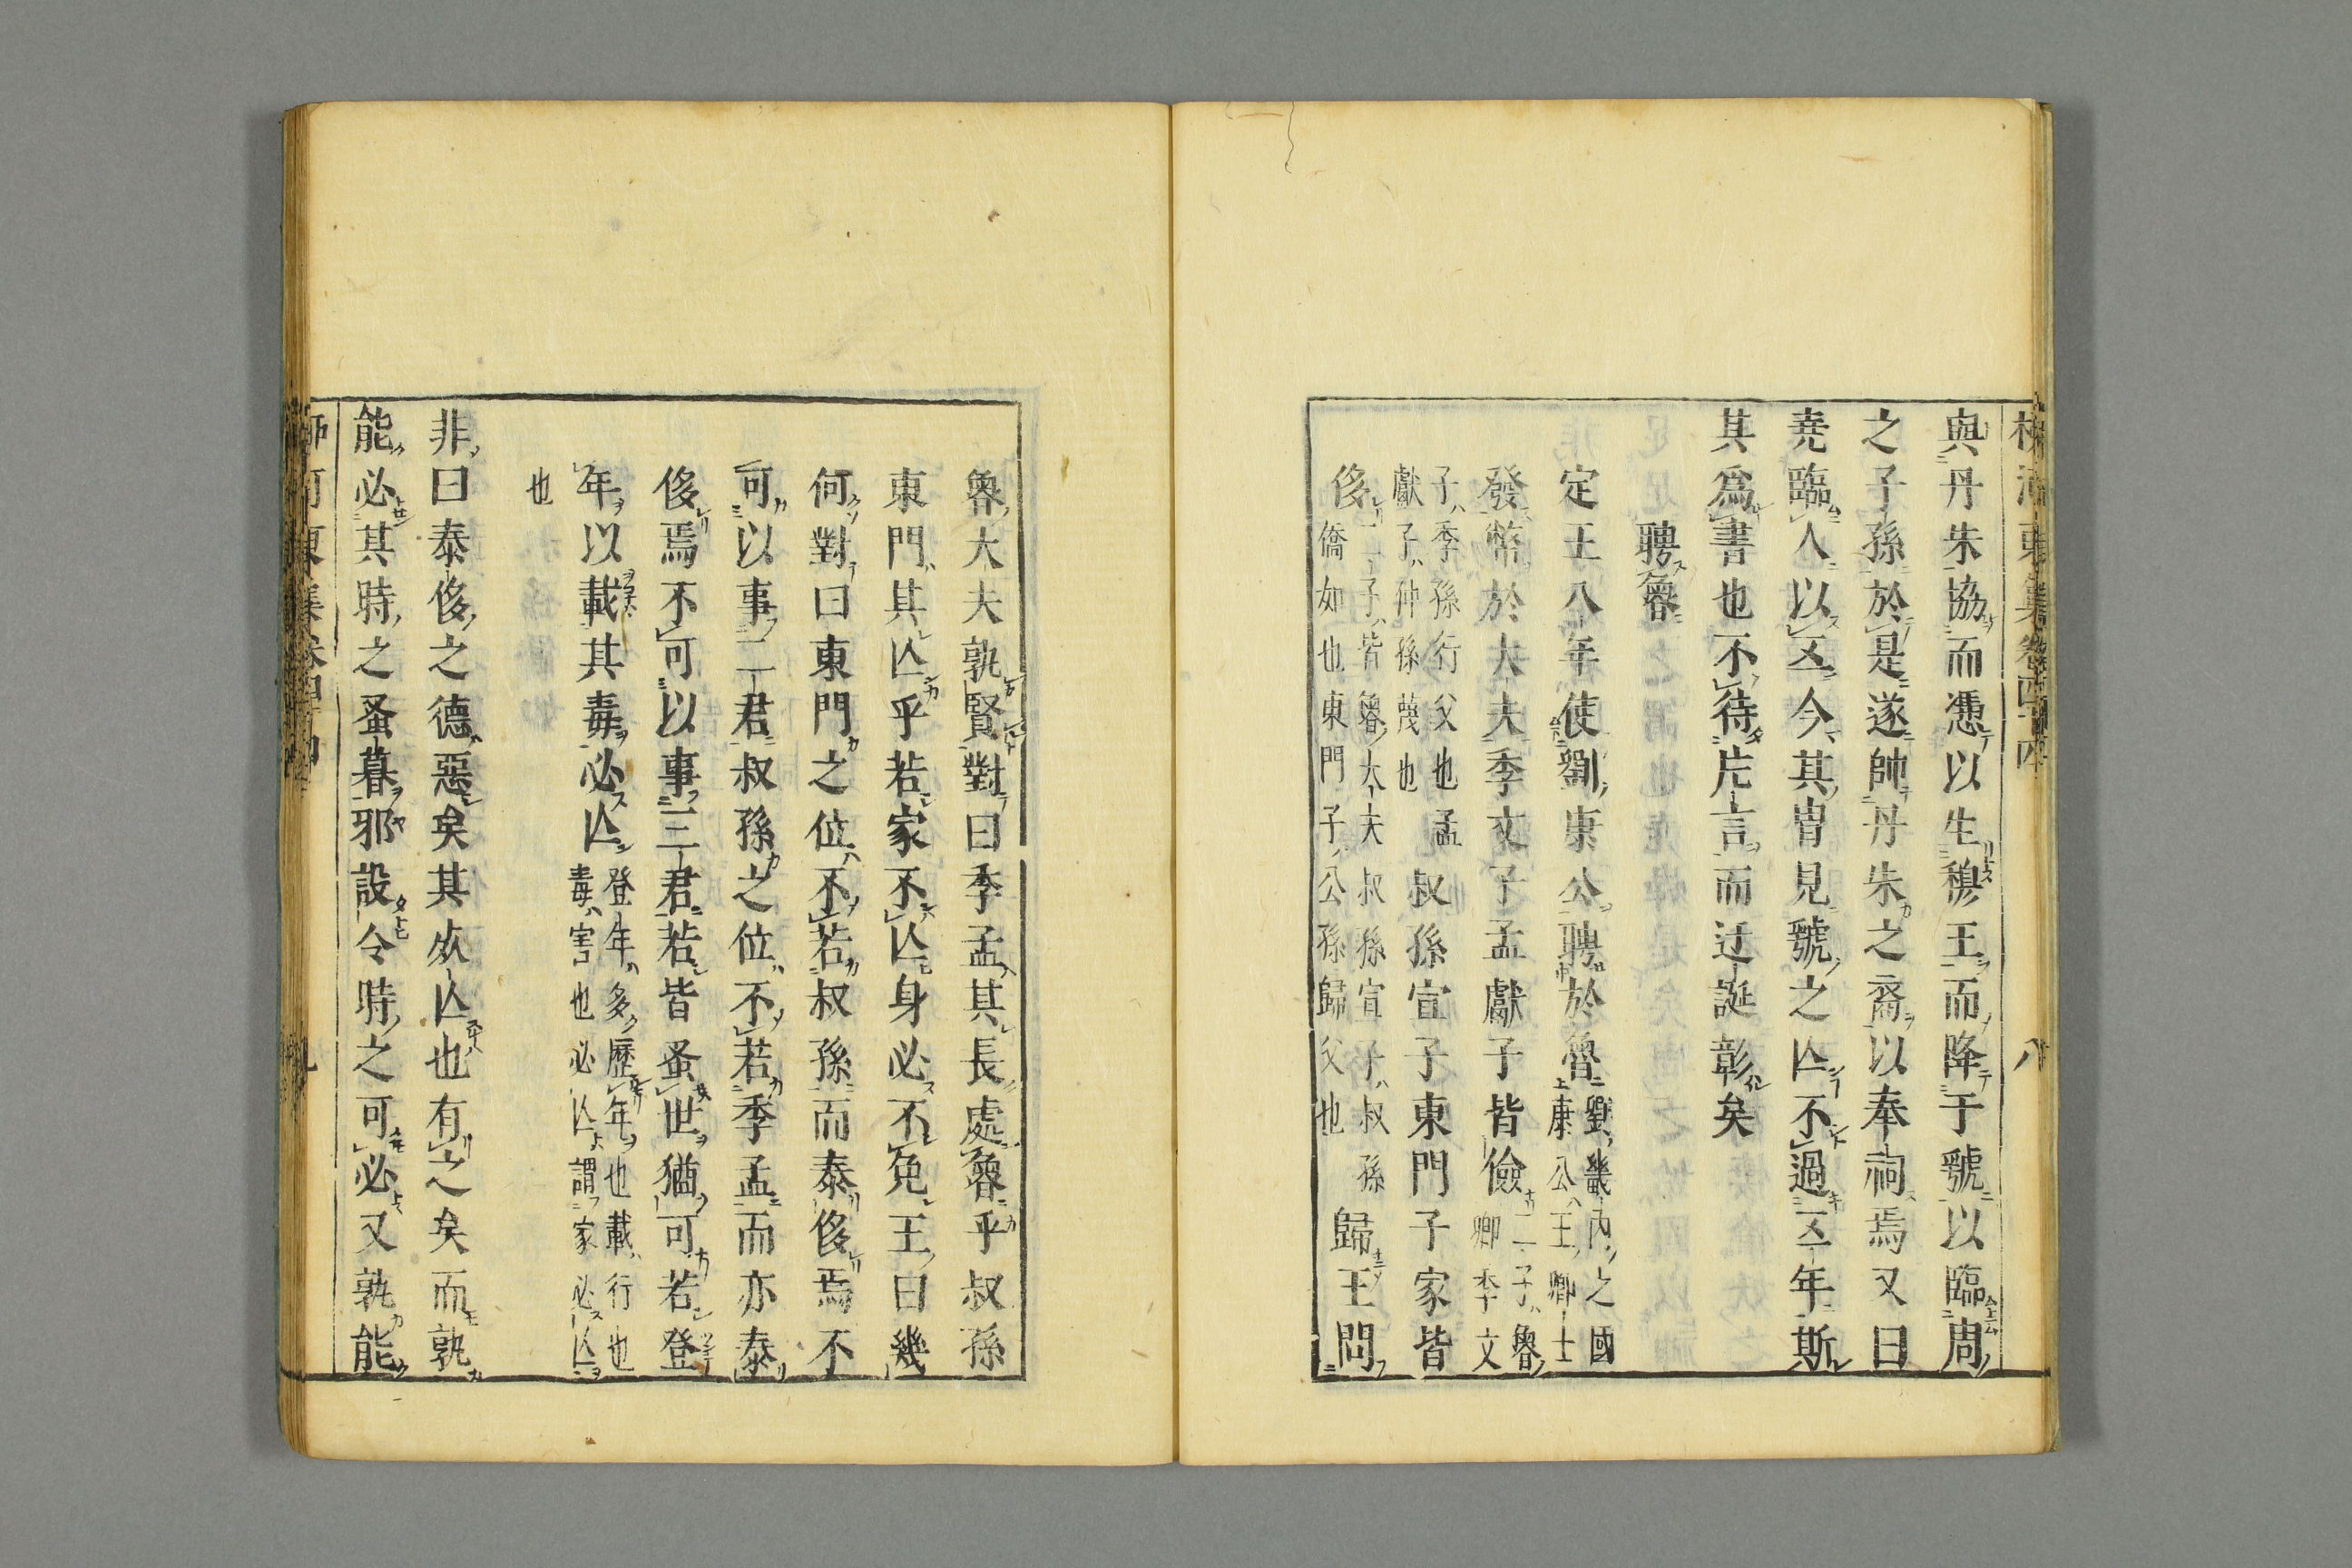 柳河東集卷四十四 八
與丹朱協而憑以生穆王而降于虢以臨周
之子孫於是遂帥丹朱之裔以奉祠焉又曰
堯臨人以五今其冑見虢之亾不過五年斯
其爲書也不待片言而迂誕彰矣
聘魯
定王八年使劉康公聘於魯劉畿内之國康公王卿士
發幣於大夫季文子孟獻子皆儉二子魯卿季文
子季孫行父也孟獻子仲孫蔑也叔孫宣子東門子家皆
侈二子皆魯大夫叔孫宣子叔孫僑如也東門子公孫歸父也歸王問
魯大夫孰賢對曰季孟其長處魯乎叔孫
東門其亾乎若家不亾身必不免王曰幾
何對曰東門之位不若叔孫而泰侈焉不
可以事二君叔孫之位不若季孟而亦泰
侈焉不可以事三君若皆蚤世猶可若登
年以載其毒必亾登年多歷年也載行也毒害也必亾謂家必亾
也
非曰泰侈之德惡矣其死亾也有之矣而孰
能必其時之蚤暮邪設令時之可必又孰能
柳河東集卷四十四 九